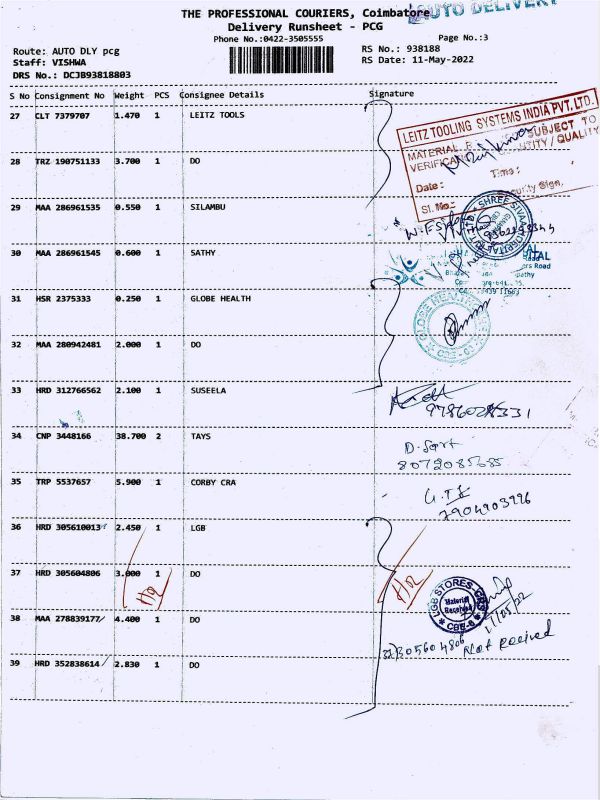 THE PROFESSIONAL COURIERS, Coimbatore
AUTO DELIVERY
Delivery Runsheet - PCG
Phone No.:0422-3505555
Page No.:3
Route: AUTO DLY pcg
RS No.: 938188
Staff: VISHWA
RS Date: 11-May-2022
DRS No.: DCJB93818803
S No Consignment No Weight PCS Consignee Details Signature
27 CLT 7379707 1.470 1 LEITZ TOOLS
LEITZ TOOLING SYSTEMS INDIA PVT. LTD.
MATERIAL SUBJECT TO
QUALITY
Date : Time :
Security Sign.
Sl. No.:
28 TRZ 190751133 3.700 1 DO
29 MAA 286961535 0.550 1 SILAMBU
SHREE SIVAA HOSPITAL
30 MAA 286961545 0.600 1 SATHY
31 HSR 2375333 0.250 1 GLOBE HEALTH
GLOBE HEALTH
32 MAA 280942481 2.000 1 DO
33 HRD 312766562 2.100 1 SUSEELA
34 CNP 3448166 38.700 2 TAYS
8072085685
35 TRP 5537657 5.900 1 CORBY CRA
7904903996
36 HRD 305610013 2.450 1 LGB
37 HRD 305604806 3.000 1 DO
HQ
HQ
LGB STORES
Material
Received
CBE-6
11/05/22
38 MAA 278839177 4.400 1 DO
37) 305604806 Not Received
39 HRD 352838614 2.830 1 DO